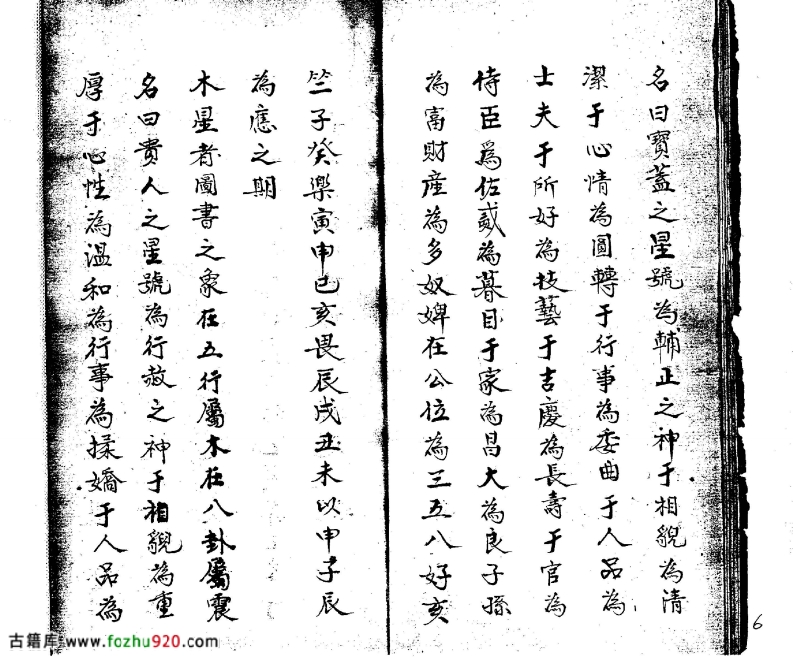 名曰寶蓋之星號為輔正之神于相貌為清
潔于心情為圓轉于行事為委曲于人品為
士夫于所好為技藝于吉慶為長壽于官為
侍臣為佐貳為幕目于家為昌大為良子孫
為富財產為多奴婢在公位為三五八好亥
子癸樂寅申巳亥畏辰戌丑未以申子辰
為應之期
木星者圖書之象在五行屬木在八卦屬震
名曰貴人之星號為行赦之神于相貌為重
厚于心性為溫和為行事為揉嬌于人品為
6
古籍库:www.fozhu920.com